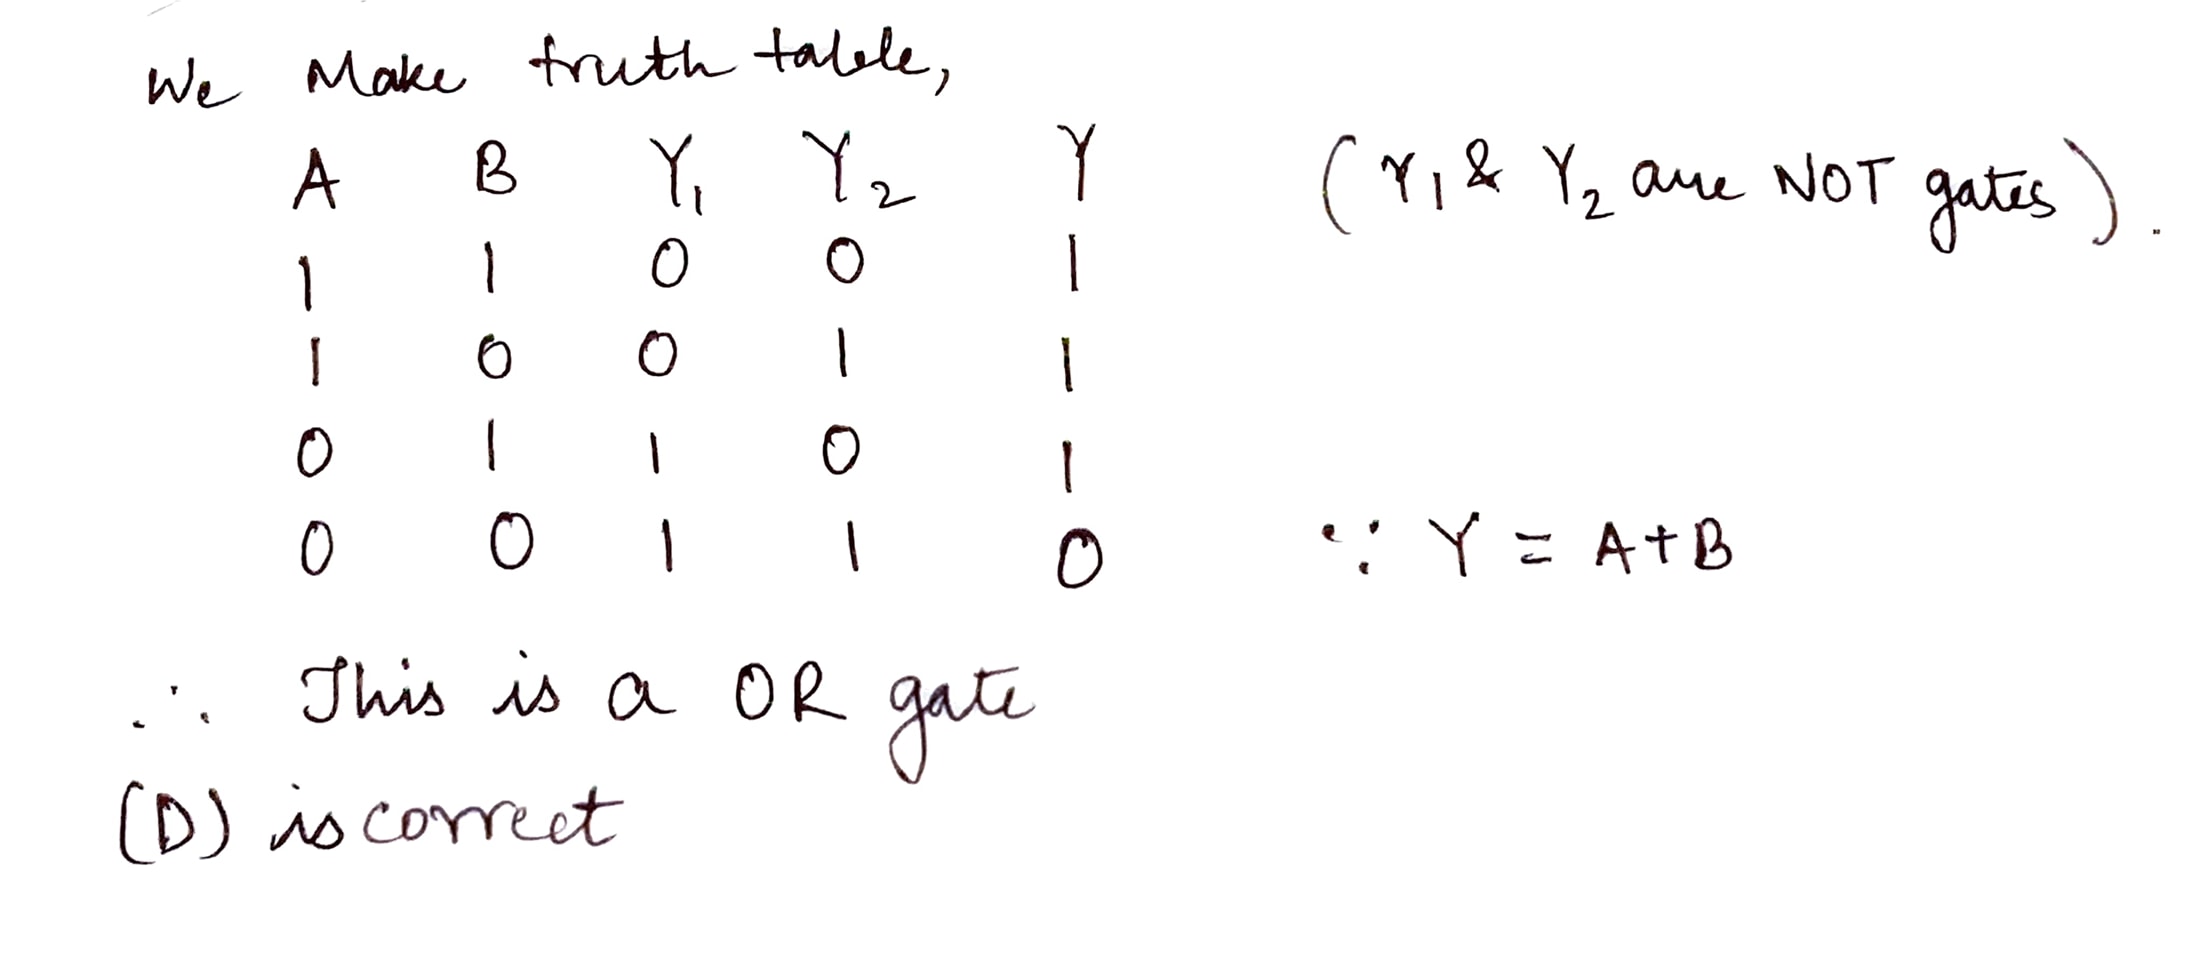 We Make truth table,
A B Y₁ Y₂ Y (Y₁ & Y₂ are NOT gates).
1 1 0 0 1
1 0 0 1 1
0 1 1 0 1
0 0 1 1 0 ∵ Y = A+B
∴ This is a OR gate
(D) is correct